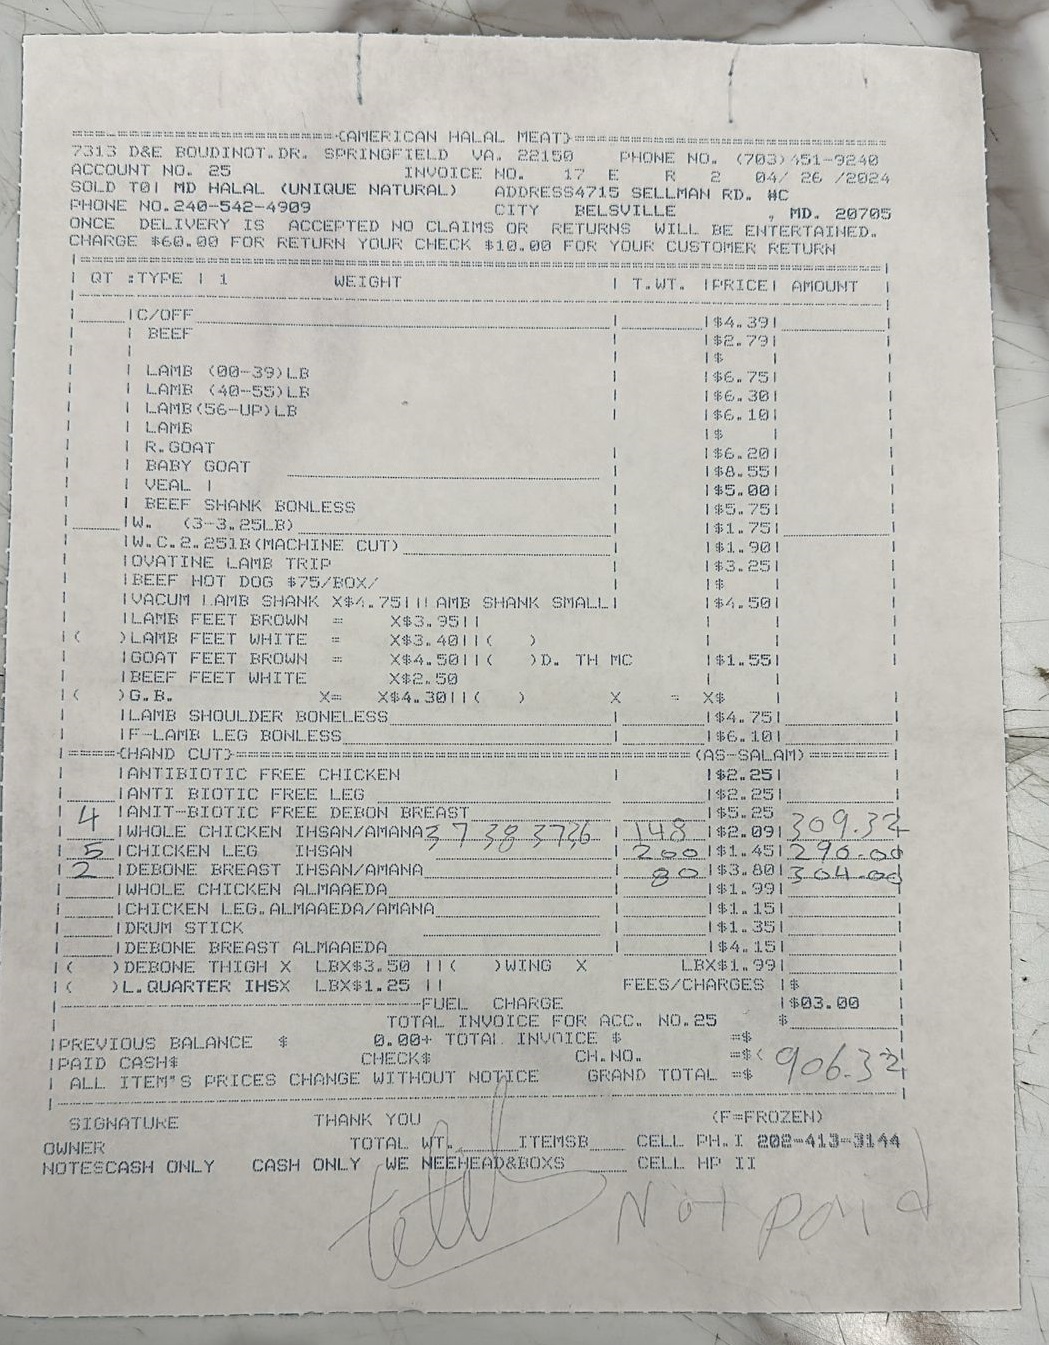 (AMERICAN HALAL MEAT)
7313 D&E BOUDINOT.DR. SPRINGFIELD VA. 22150 PHONE NO. (703)451-9240
ACCOUNT NO. 25 INVOICE NO. 17 E R 2 04/ 26 /2024
SOLD TO| MD HALAL (UNIQUE NATURAL) ADDRESS4715 SELLMAN RD. #C
PHONE NO.240-542-4909 CITY BELSVILLE , MD. 20705
ONCE DELIVERY IS ACCEPTED NO CLAIMS OR RETURNS WILL BE ENTERTAINED.
CHARGE $60.00 FOR RETURN YOUR CHECK $10.00 FOR YOUR CUSTOMER RETURN
| QT :TYPE | 1 WEIGHT | T.WT. |PRICE| AMOUNT |
|C/OFF | |$4.39|
| BEEF | |$2.79|
| | |$ |
| LAMB (00-39)LB | |$6.75|
| LAMB (40-55)LB | |$6.30|
| LAMB(56-UP)LB | |$6.10|
| LAMB | |$ |
| R.GOAT | |$6.20|
| BABY GOAT | |$8.55|
| VEAL | | |$5.00|
| BEEF SHANK BONLESS | |$5.75|
|W. (3-3.25LB) | |$1.75|
|W.C.2.25lB(MACHINE CUT) | |$1.90|
|OVATINE LAMB TRIP | |$3.25|
|BEEF HOT DOG $75/BOX/ | |$ |
|VACUM LAMB SHANK X$4.75||LAMB SHANK SMALL| |$4.50|
|LAMB FEET BROWN = X$3.95||
|( )LAMB FEET WHITE = X$3.40||( )
|GOAT FEET BROWN = X$4.50||( )D. TH MC |$1.55|
|BEEF FEET WHITE X$2.50
|( )G.B. X= X$4.30||( ) X = X$
|LAMB SHOULDER BONELESS | |$4.75|
|F-LAMB LEG BONLESS | |$6.10|
(HAND CUT) (AS-SALAM)
|ANTIBIOTIC FREE CHICKEN | |$2.25|
|ANTI BIOTIC FREE LEG |$2.25|
|ANIT-BIOTIC FREE DEBON BREAST |$5.25
4 |WHOLE CHICKEN IHSAN/AMANA 37 38 37 36 | 148 |$2.09| 309.32
5 |CHICKEN LEG IHSAN | 200 |$1.45| 290.00
2 |DEBONE BREAST IHSAN/AMANA | 80 |$3.80| 304.00
|WHOLE CHICKEN ALMAAEDA | |$1.99|
|CHICKEN LEG.ALMAAEDA/AMANA | |$1.15|
|DRUM STICK | |$1.35|
|DEBONE BREAST ALMAAEDA | |$4.15|
|( )DEBONE THIGH X LBX$3.50 ||( )WING X LBX$1.99|
|( )L.QUARTER IHSX LBX$1.25 || FEES/CHARGES |$
FUEL CHARGE |$03.00
TOTAL INVOICE FOR ACC. NO.25 $
|PREVIOUS BALANCE $ 0.00+ TOTAL INVOICE $ =$
|PAID CASH$ CHECK$ CH.NO. =$(
| ALL ITEM"S PRICES CHANGE WITHOUT NOTICE GRAND TOTAL =$ 906.32
SIGNATURE THANK YOU (F=FROZEN)
OWNER TOTAL WT. ITEMSB CELL PH.I 202-413-3144
NOTESCASH ONLY CASH ONLY WE NEEHEAD&BOXS CELL HP II
Not paid